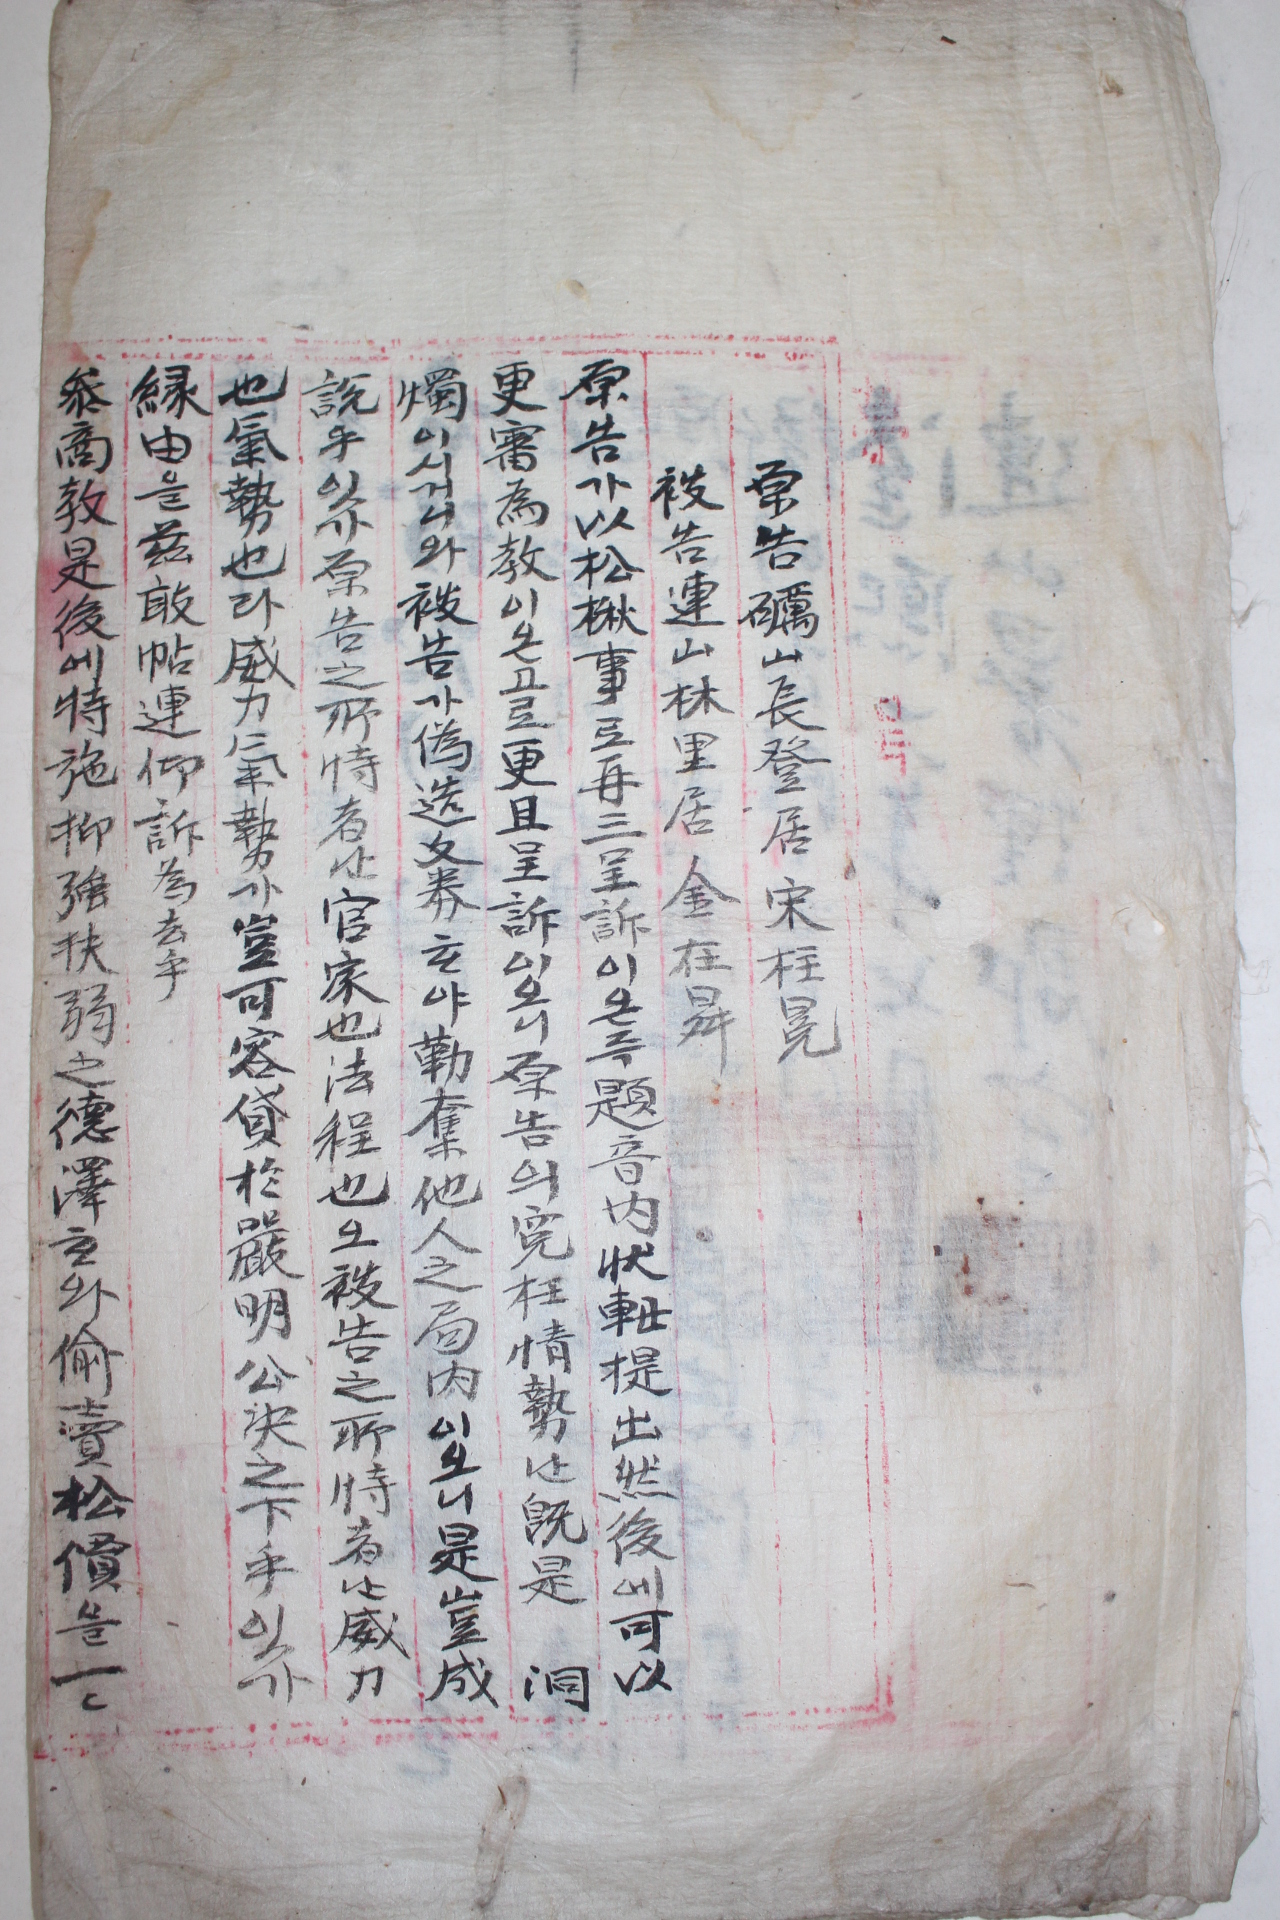 原告礪山長登居 宋柱冕
被告連山林里居 金在昇
原告가以松楸事로再三呈訴이온즉題音內狀軸提出然後에可以
更審為教이온고로更且呈訴이오니原告의寃枉情勢ᄂᆞᆫ旣是 洞
燭이시거니와被告가偽造文券ᄒᆞ야勒奪他人之局內이오니是豈成
說乎잇가原告之所恃者ᄂᆞᆫ官家也法程也오被告之所恃者ᄂᆞᆫ威力
也氣勢也라威力氣勢가豈可容貸於嚴明公決之下乎잇가
緣由을玆敢帖連仰訴為去乎
叅商教是後에特施抑強扶弱之德澤ᄒᆞ와偷賣松價을一一